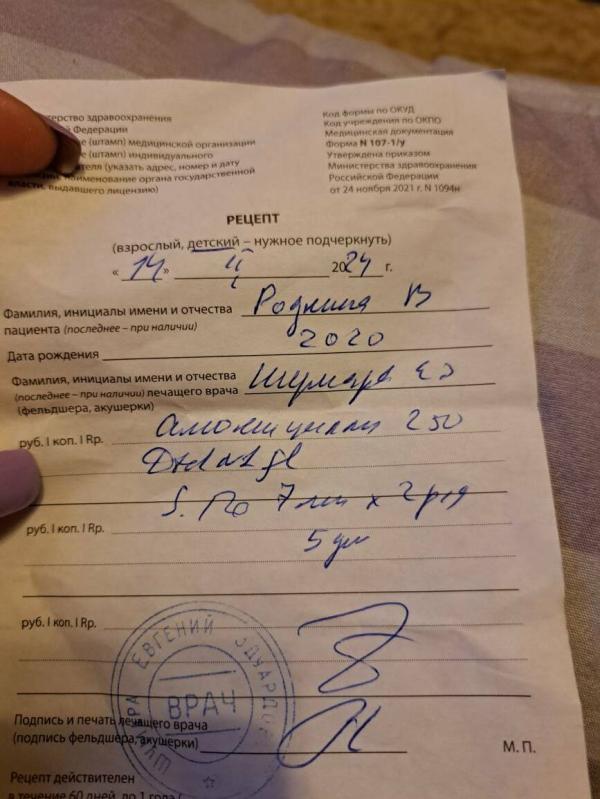 стерство здравоохранения
й Федерации
е (штамп) медицинской организации
е (штамп) индивидуального
ателя (указать адрес, номер и дату
наименование органа государственной
власти, выдавшего лицензию)
Код формы по ОКУД
Код учреждения по ОКПО
Медицинская документация
Форма N 107-1/у
Утверждена приказом
Министерства здравоохранения
Российской Федерации
от 24 ноября 2021 г. N 1094н
РЕЦЕПТ
(взрослый, детский – нужное подчеркнуть)
« 14 » 2024 г.
Фамилия, инициалы имени и отчества
пациента (последнее – при наличии)
В
Дата рождения 2020
Фамилия, инициалы имени и отчества
(последнее – при наличии) лечащего врача Шумара ЕЭ
(фельдшера, акушерки)
руб. I коп. I Rp. Амоксициллин 250
S. По 7 мл х 2 р/д
руб. I коп. I Rp.
5 дн
руб. I коп. I Rp.
ШУМАРА ЕВГЕНИЙ ЭДУАРДОВ
ВРАЧ
Подпись и печать лечащего врача
(подпись фельдшера, акушерки)
М. П.
Рецепт действителен
в течение 60 дней, до 1 года (